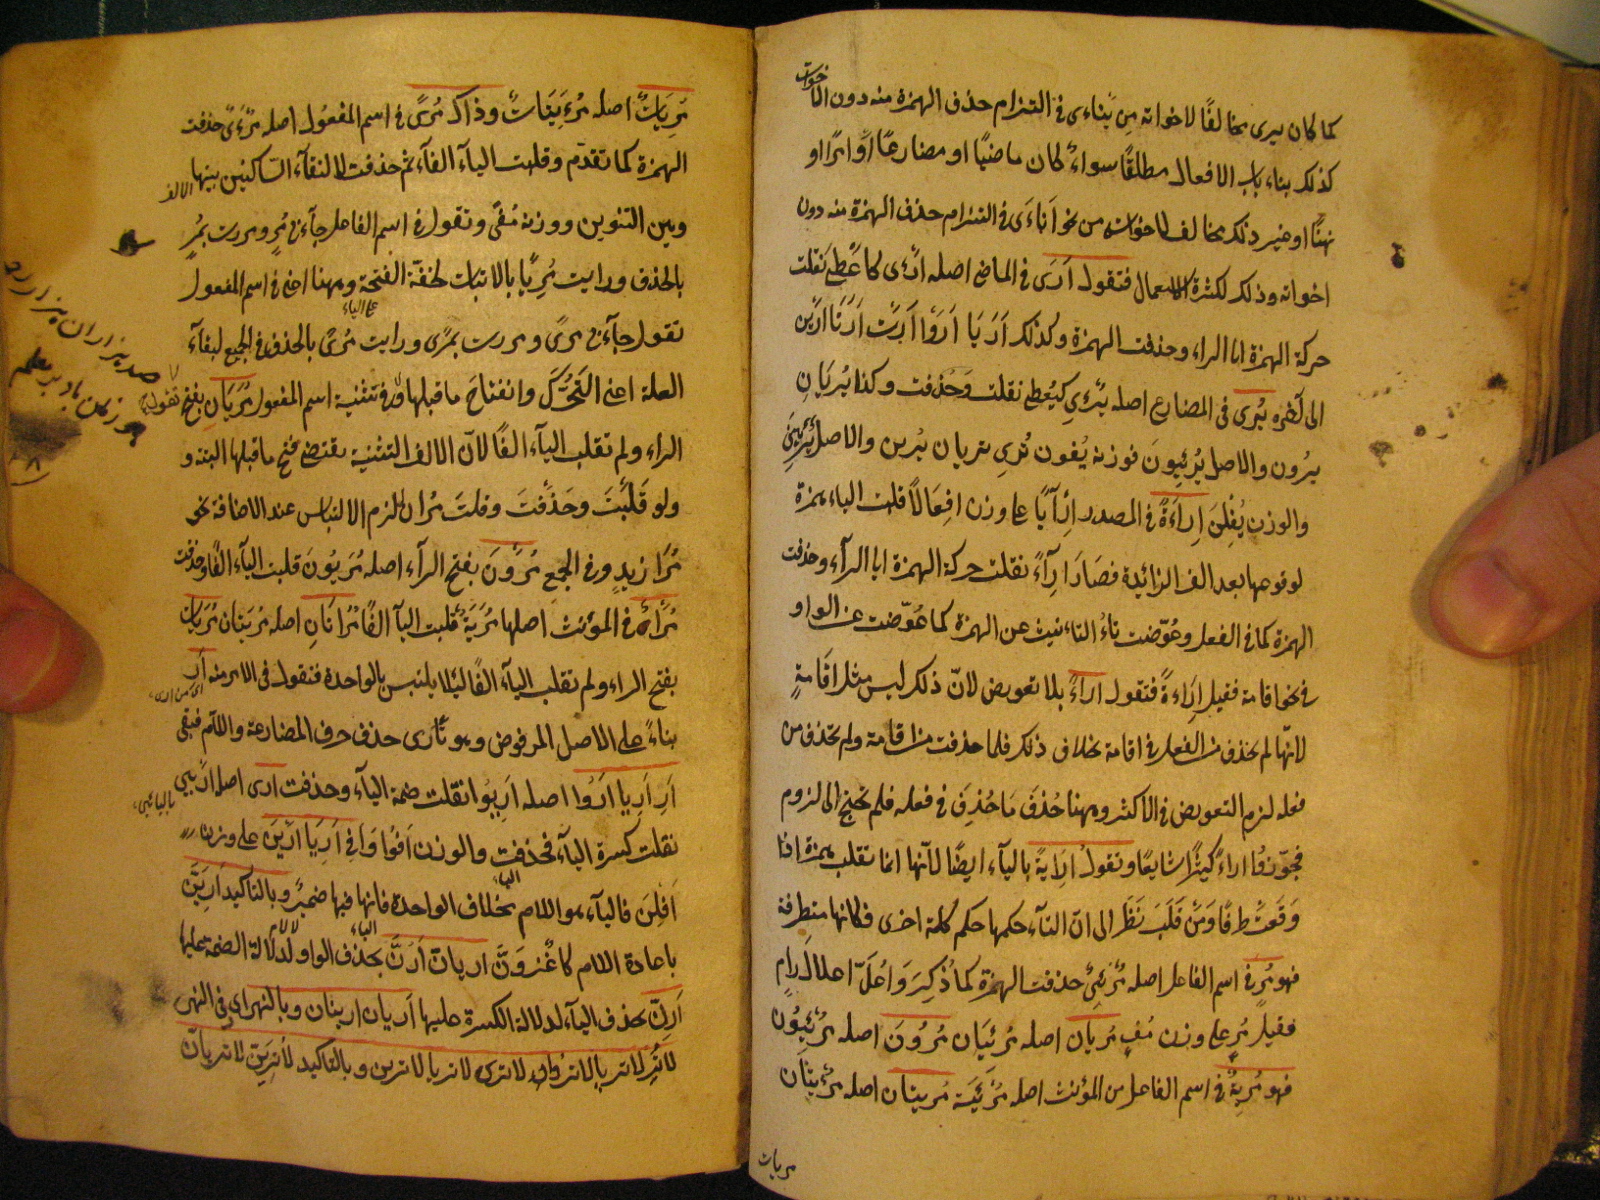 كما كان يرى مخالفًا لاخواته مِن يَناءى فى التزام حذف الهمزة منه دون الاخوات
كذلك بناء باب الافعال مطلقًا سواء كان ماضيًا او مضارعًا او امرًا او
نهيًا او غير ذلك مخالف لاخواته من نحو اَناءَى فى التزام حذف الهمزة منه دون
اخواته وذلك لكثرة الاستعمال فتقول اَرَى فى الماضى اصله ارْءى كاَعْطى نقلت
حركة الهمزة الى الراء وحذفت الهمزة وكذلك اَرَيَا اَرَوْا اَرَتْ اَرَتَا اَرَيْن
الى آخره يُرِى فى المضارع اصله يُرْءِى كيُعطى نقلت وحذفت وكذا يُرِيَانِ
يرُون والاصل يُرْئِيونَ فوزنه يُفون تُرِى تريان يُرين والاصل يُرْئِينَ
والوزن يُفِلنَ اِراءَةً فى المصدر اِرْآيًا على وزن افِعَالًا قلبت الياء همزة
لوقوعها بعد الف الزائدة فصَارَ اِرآءً نقلت حركة الهمزة الى الرآء وحذفت
الهمزة كما فى الفعل وعُوّضت تاءُ التاءنيث عن الهمزة كما عُوّضت عن الواو
فى نحو اقامة فقيل اِراءةً فتقول اراءً بلا تعويض لانّ ذلك ليس مثل اقامةٍ
لانّها لم يحذف من الفعل فى اقامة بخلاف ذلك فلما حذفت من اقامة ولم تحذف من
فعله لزم التعويض فى الاكثر وههنا حُذفَ مَا حُذِفَ فى فعله فلم يحتج الى لزوم
فجوّزوا اراءً كثيرًا شايعًا وتقول اِرايةً بالياء ايضًا لانّها انما تقلب همزة اذا
وَقعتْ طرفًا ومَنْ قلَبَ نَظَرَ الى انّ التآء حكمها حكم كلمة اخرى فكانها متطرفة
فهو مُرٍ فى اسم الفاعل اصله مُرْئِىٌ حذفت الهمزة كما ذُكِرَ وَاُعلّ اعلال رَامٍ
فقيل مُرٍ على وزن مُفٍ مُرِيان اصله مُرْئيَان مُرُونَ اصله مُرْئِيُونَ
فهو مُريةٌ فى اسم الفاعل من المؤنث اصله مُرْئِيَة مُريتان اصله مُرْئِيَتَان
مريات
مُرِيَاتٌ اصله مُرْءِيَاتٌ وذاك مُرًى فى اسم المفعُول اصله مُرْءَىٌ حذفت
الهمزة كما تقدّم وقلبت اليآء الفاء ثم حذفت لالتقآء السّاكنين بينها الالف
وبين التنوين ووزنه مُفًى وتقول فى اسم الفاعل جآءنى مُرٍ ومررت بمُرٍ
بالحذف ورايت مُرِيًا بالاثبات لخفّة الفتحة على الياء وههنا اى فى اسم المفعول
تقول جآءنى مرًى ومررت بمُرًى ورايت مُرًى بالحذف فى الجميع لبقآء
العلة اعنى التَحرُّكَ وانفتاحَ ما قبلها وفى تثنية اسم المفعول مُرَيَانِ بفتح
الراء ولم تقلب اليآء الفًا لانّ الالف التثنية يقتضى فتح ما قبلها البتة و
ولو قَلَبْتَ وحَذَفتَ وقلتَ مُران لزم الالتباس عند الاضافة نحو
مُرَا زيدٍ وفى الجمع مُرَوْنَ بفتح الرآء اصله مُرَيُونَ قلبت اليآء الفًا وحذفت
مُرَاةٌ فى المؤنث اصلها مُرَيَةٌ قلبت اليآ الفًا مُرَاتَانِ اصله مُرَيَتان مُرَيات
بفتح الراء ولم تقلب اليآء الفًا لئلا يلتبس بالواحدة فتقول فى الامر منه اَرِ
بناءً على الاصل المرفوض وهو تُاَرى حذف حرف المضارعة واللام فبقى
اَرِ اَرِيا اَرُوا اصله اَرِيُوا نقلت ضمة اليآء وحذفت ارى اصله ارْيِى
نقلت كسرة اليآء فحذفت والوزن اَفُوا وَاَفِى اَرِيَا ارِيْنَ على وزن
اَفِلنَ فاليآء هو اللام بخلاف الواحدة فانها الياء فيها ضميرٌ وبالتاكيد اَرِيَنَّ
باعادة اللام كاُغْزُوَنَّ اريانّ اَرُنَّ بحذف الواو لدلالة الضمة عليها
اَرِنَّ بحذف اليآء لدلالة الكسرة عليها اَريان ارينان وبالنهى اى فى النهى
لاتُرِ لاتريا لاتروا لاترى لاتريا لاترين وبالتاكيد لاترِيَنّ لاتريانّ
صد هزاران هزار